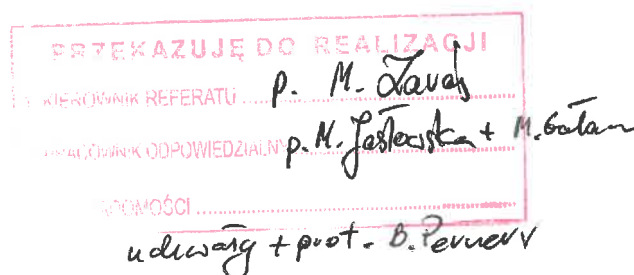 PRZEKAZUJĘ DO REALIZACJI
KIEROWNIK REFERATU ..... p. M.
PRACOWNIK ODPOWIEDZIALNY p. M. + M. Gałan
WIADOMOŚCI ..............................
uchwały + prot. B.